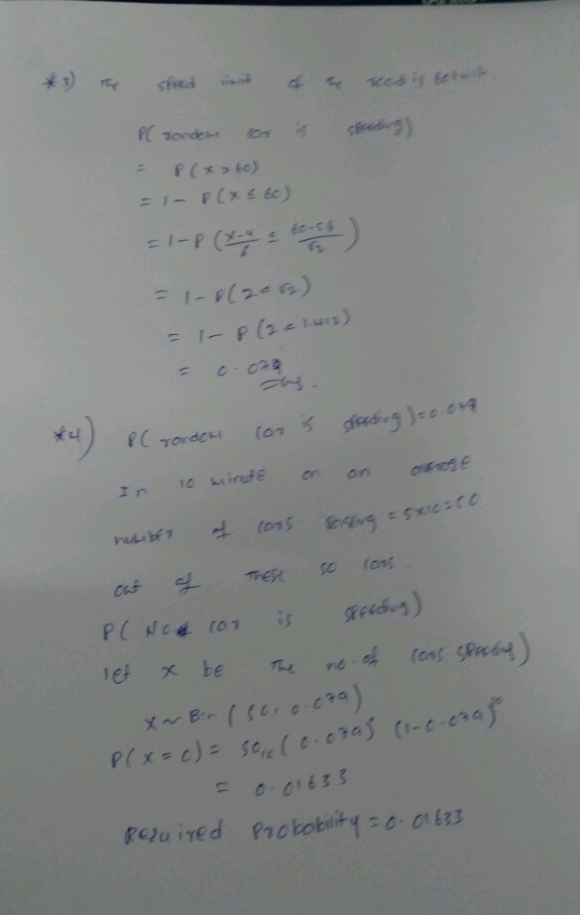 *3) The speed limit of the road is
P( random car is speeding)
= P(x > 60)
= 1 - P(x ≤ 60)
= 1 - P( (x-u)/6 ≤ (60-58)/√2 )
= 1 - P(2 < √2)
= 1 - P(2 < 1.412)
= 0.079
*4) P( random car is speeding) = 0.079
In 10 minute on an average
number of cars = 5x10=50
out of these 50 cars.
P( No car is speeding)
let x be the no. of cars speeding)
x ~ Bin (50, 0.079)
P(x = 0) = 50c0 (0.079)⁰ (1-0.079)⁵⁰
= 0.01633
Required Probability = 0.01633